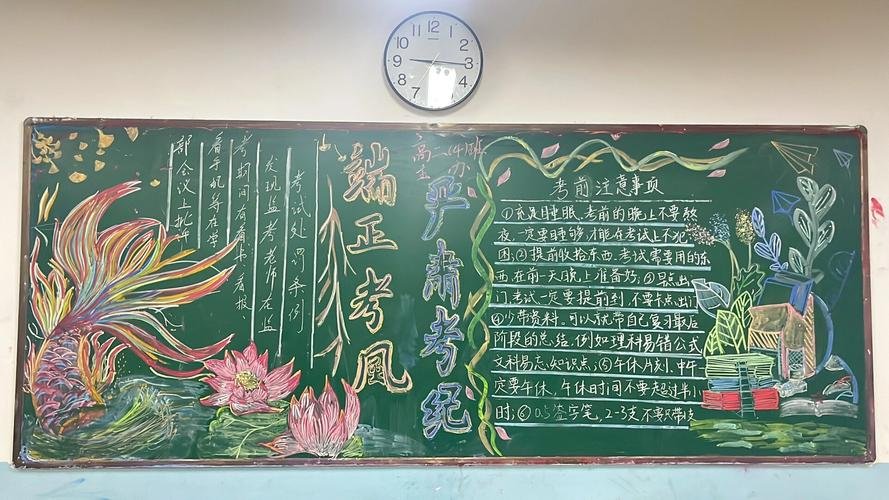 12
11
1
10
2
9
3
8
4
7
5
6
高二(4)班
主办
端正考风
严肃考纪
考试处罚条例
发现监考老师在监
考期间有看书、看报
看手机等在学
部会议上批评
考前注意事项
①充足睡眠,考前的晚上不要熬
夜,一定要睡够,才能在考试上不犯
困;②提前收拾东西,考试需要用的东
西,在前一天晚上准备好;③早出
门,考试一定要提前到,不要卡点出门
④少带资料。可以就带自己复习最后
阶段的总结,例如理科易错公式
文科易忘知识点;⑤午休片刻,中午一
定要午休,午休时间不要超过半小
时;⑥0.5签字笔,2-3支不要只带1支